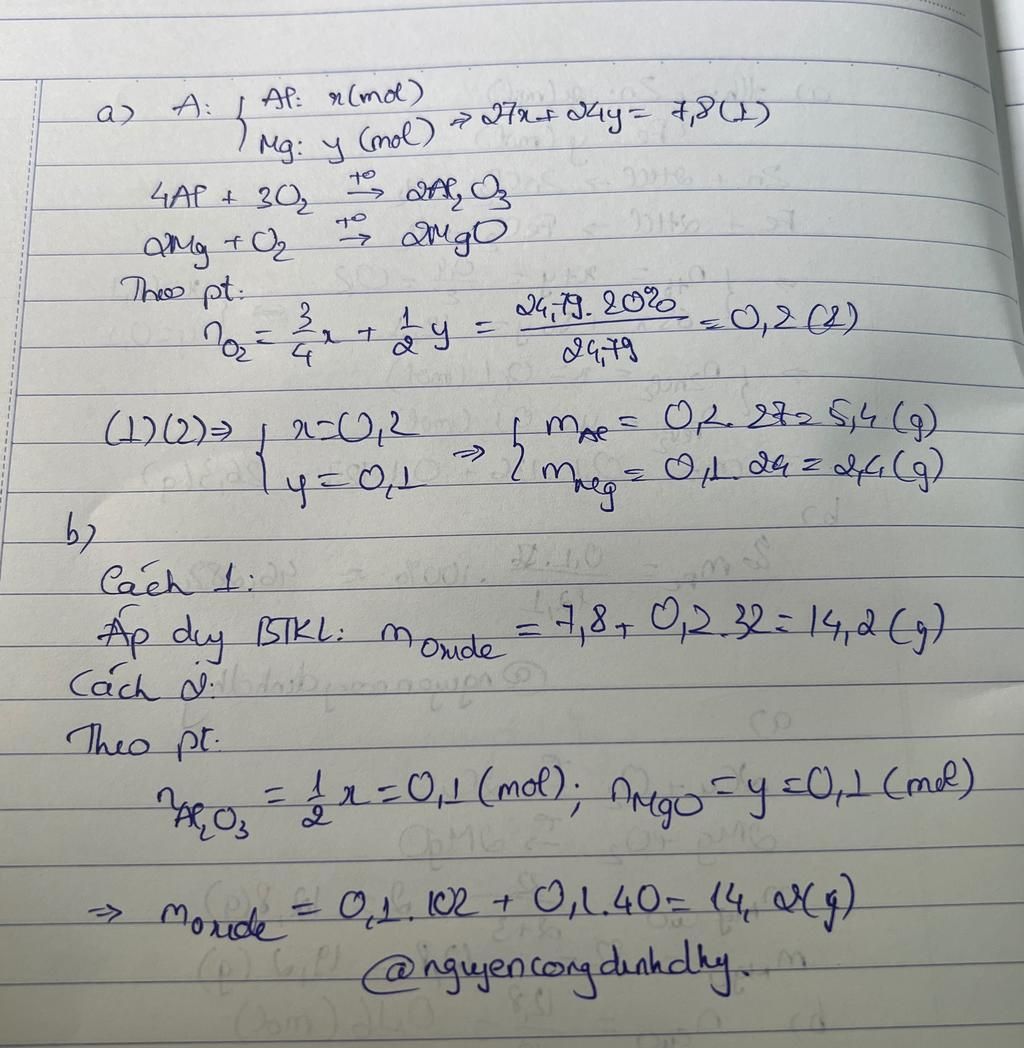 a) A: { Al: x (mol)
Mg: y (mol) ⇒ 27x + 24y = 7,8 (1)
4Al + 3O₂ →(t°) 2Al₂O₃
2Mg + O₂ →(t°) 2MgO
Theo pt:
n_O₂ = 3/4 x + 1/2 y = 24,79. 20% / 24,79 = 0,2 (2)
(1)(2) ⇒ { x = 0,2 ⇒ { m_Al = 0,2. 27 = 5,4 (g)
y = 0,1 m_Mg = 0,1. 24 = 2,4 (g)
b)
Cách 1:
Áp dụg BTKL: m_oxide = 7,8 + 0,2.32 = 14,2 (g)
Cách 2:
Theo pt:
n_Al₂O₃ = 1/2 x = 0,1 (mol); n_MgO = y = 0,1 (mol)
⇒ m_oxide = 0,1. 102 + 0,1. 40 = 14,2 (g)
@nguyencongdinhdhy.